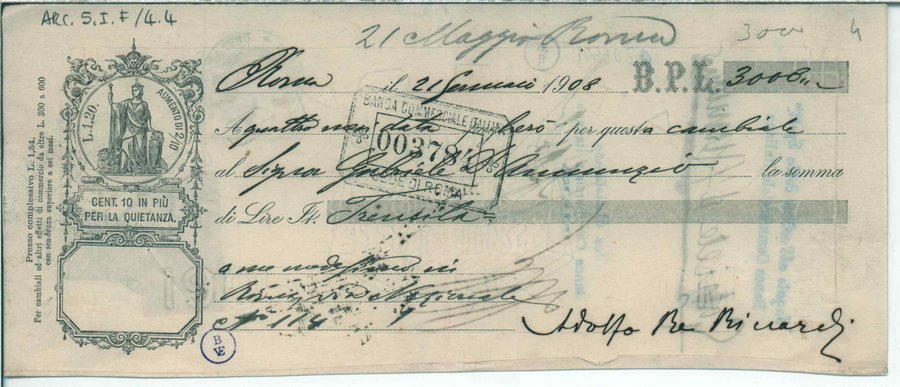 ARC. S. I. F/4.4
21 Maggio Roma
3000
4
Roma il 21 Gennaio 1908 B.P.L. 3000
L.1,20. AUMENTO DI 2/10
CENT. 10 IN PIÙ
PER LA QUIETANZA.
Prezzo complessivo L. 1,54.
Per cambiali ed altri effetti di commercio da oltre L. 300 a 600
con scadenza superiore a sei mesi.
BANCA COMMERCIALE ITALIANA
00378
SEDE DI ROMA
A quattro mesi data pagherò per questa cambiale
al Signor Gabriele D'Annunzio la somma
di Lire It. Tremila
a me medesimo in
Roma via Nazionale
N° 114
Adolfo Re Riccardi
B
VE